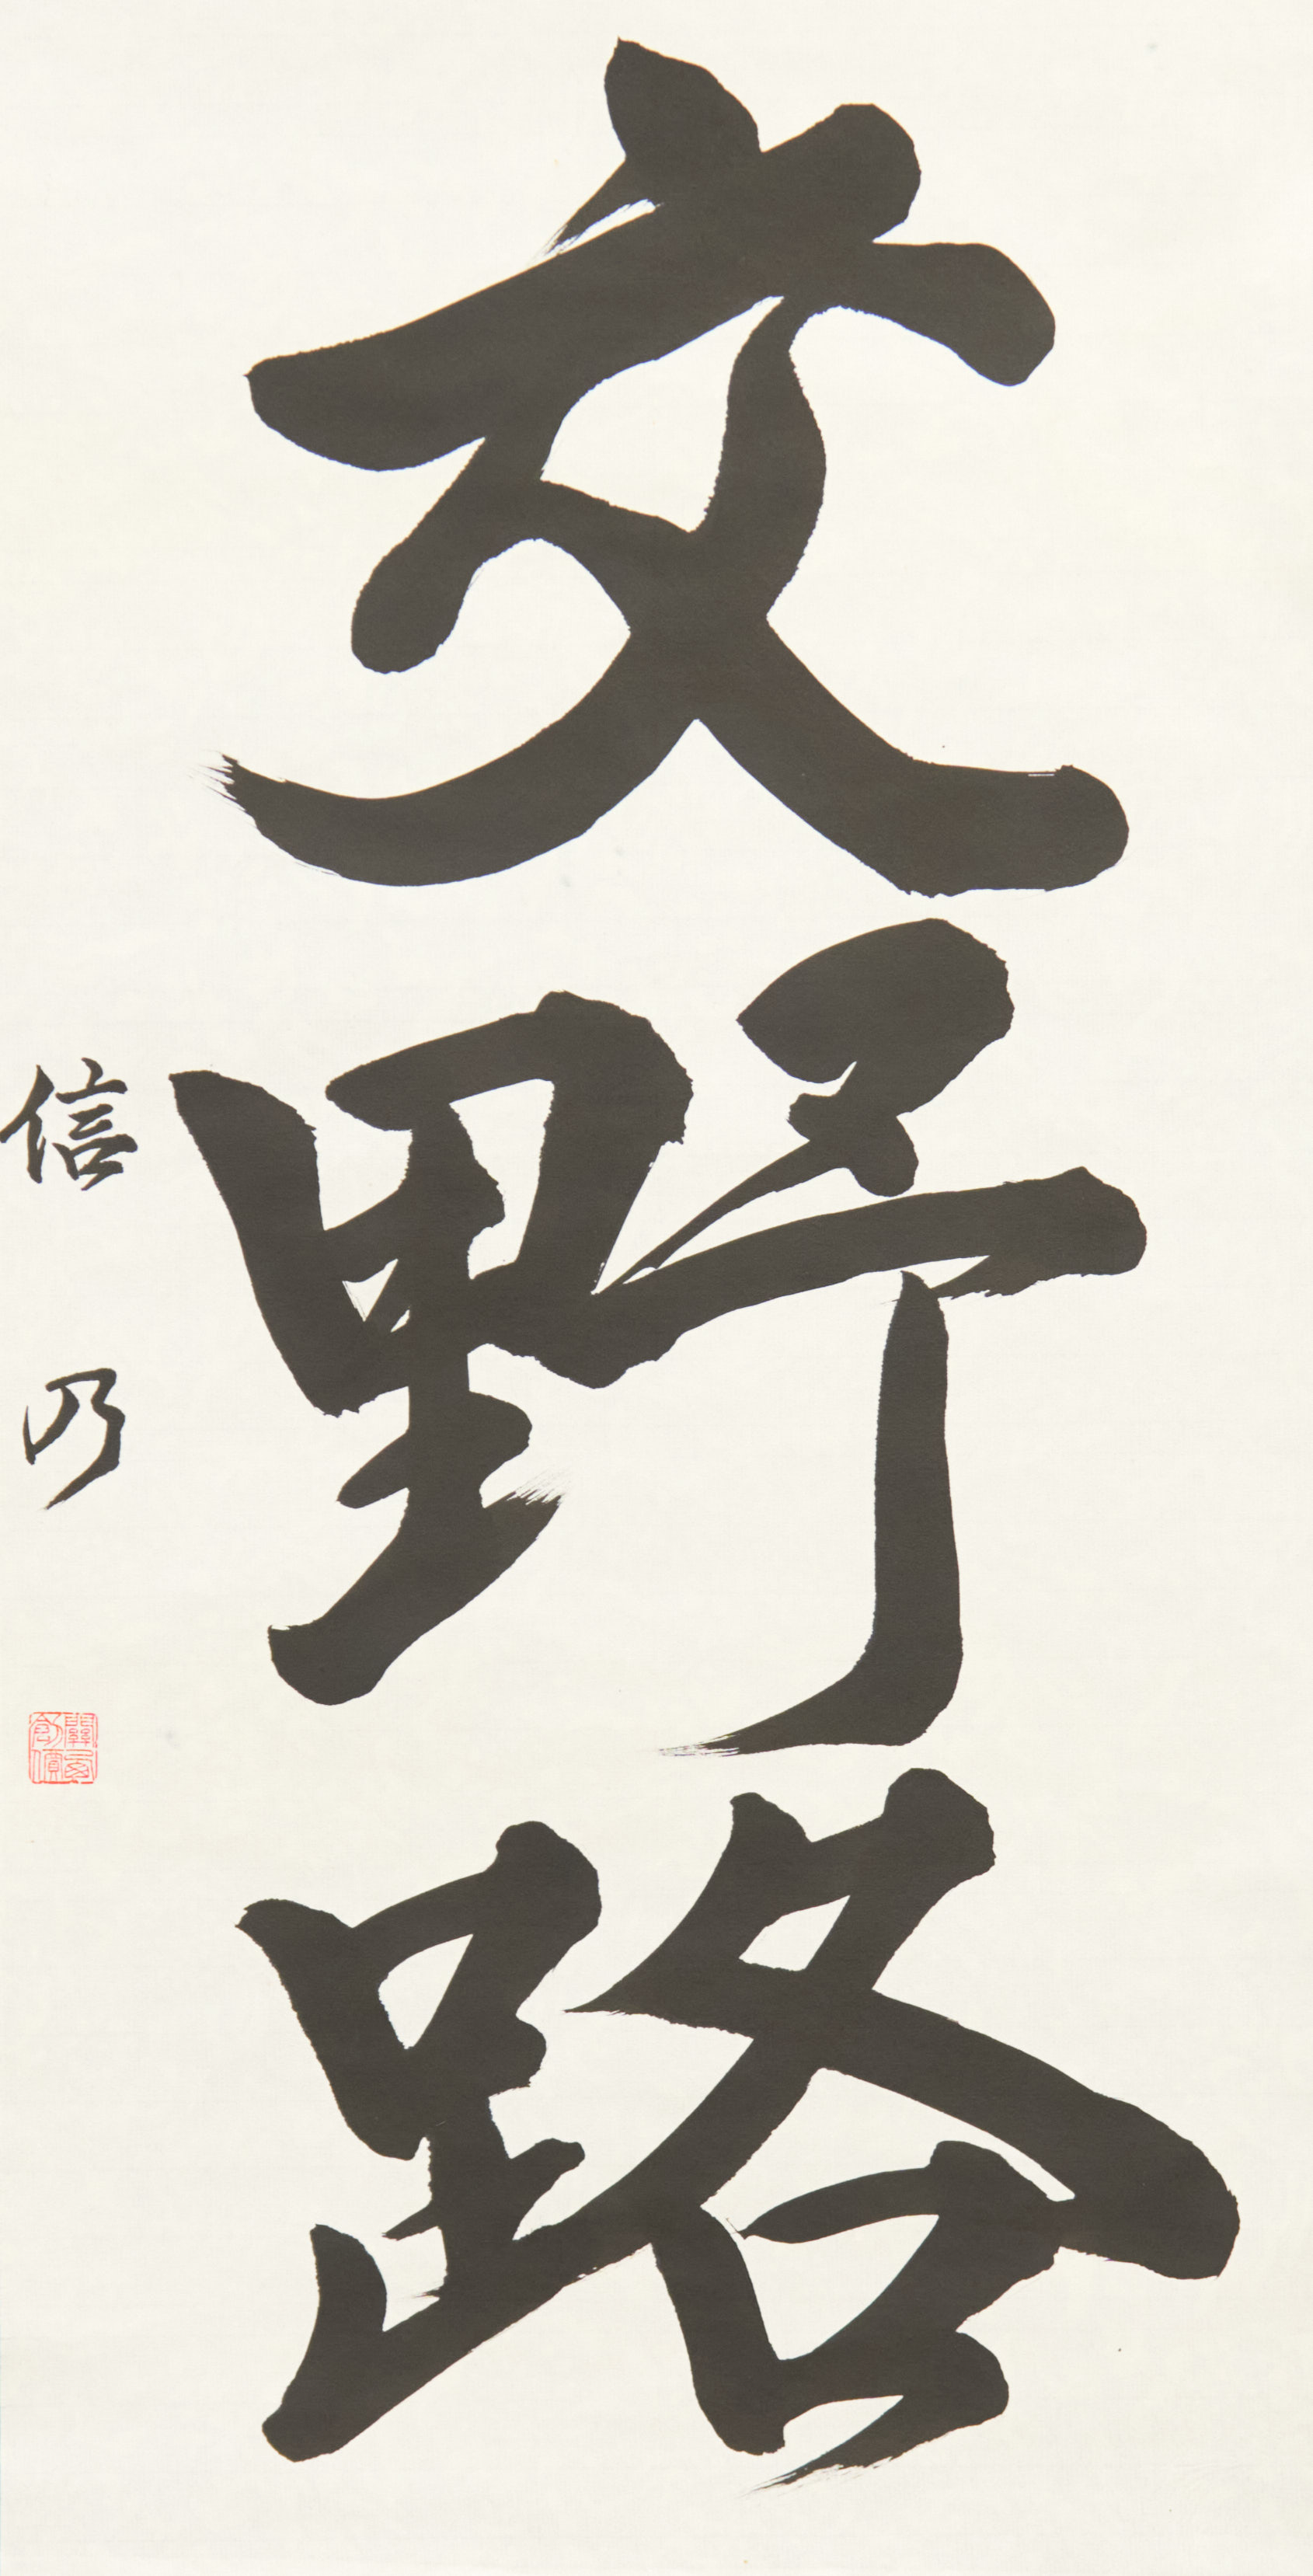 交野路
信乃